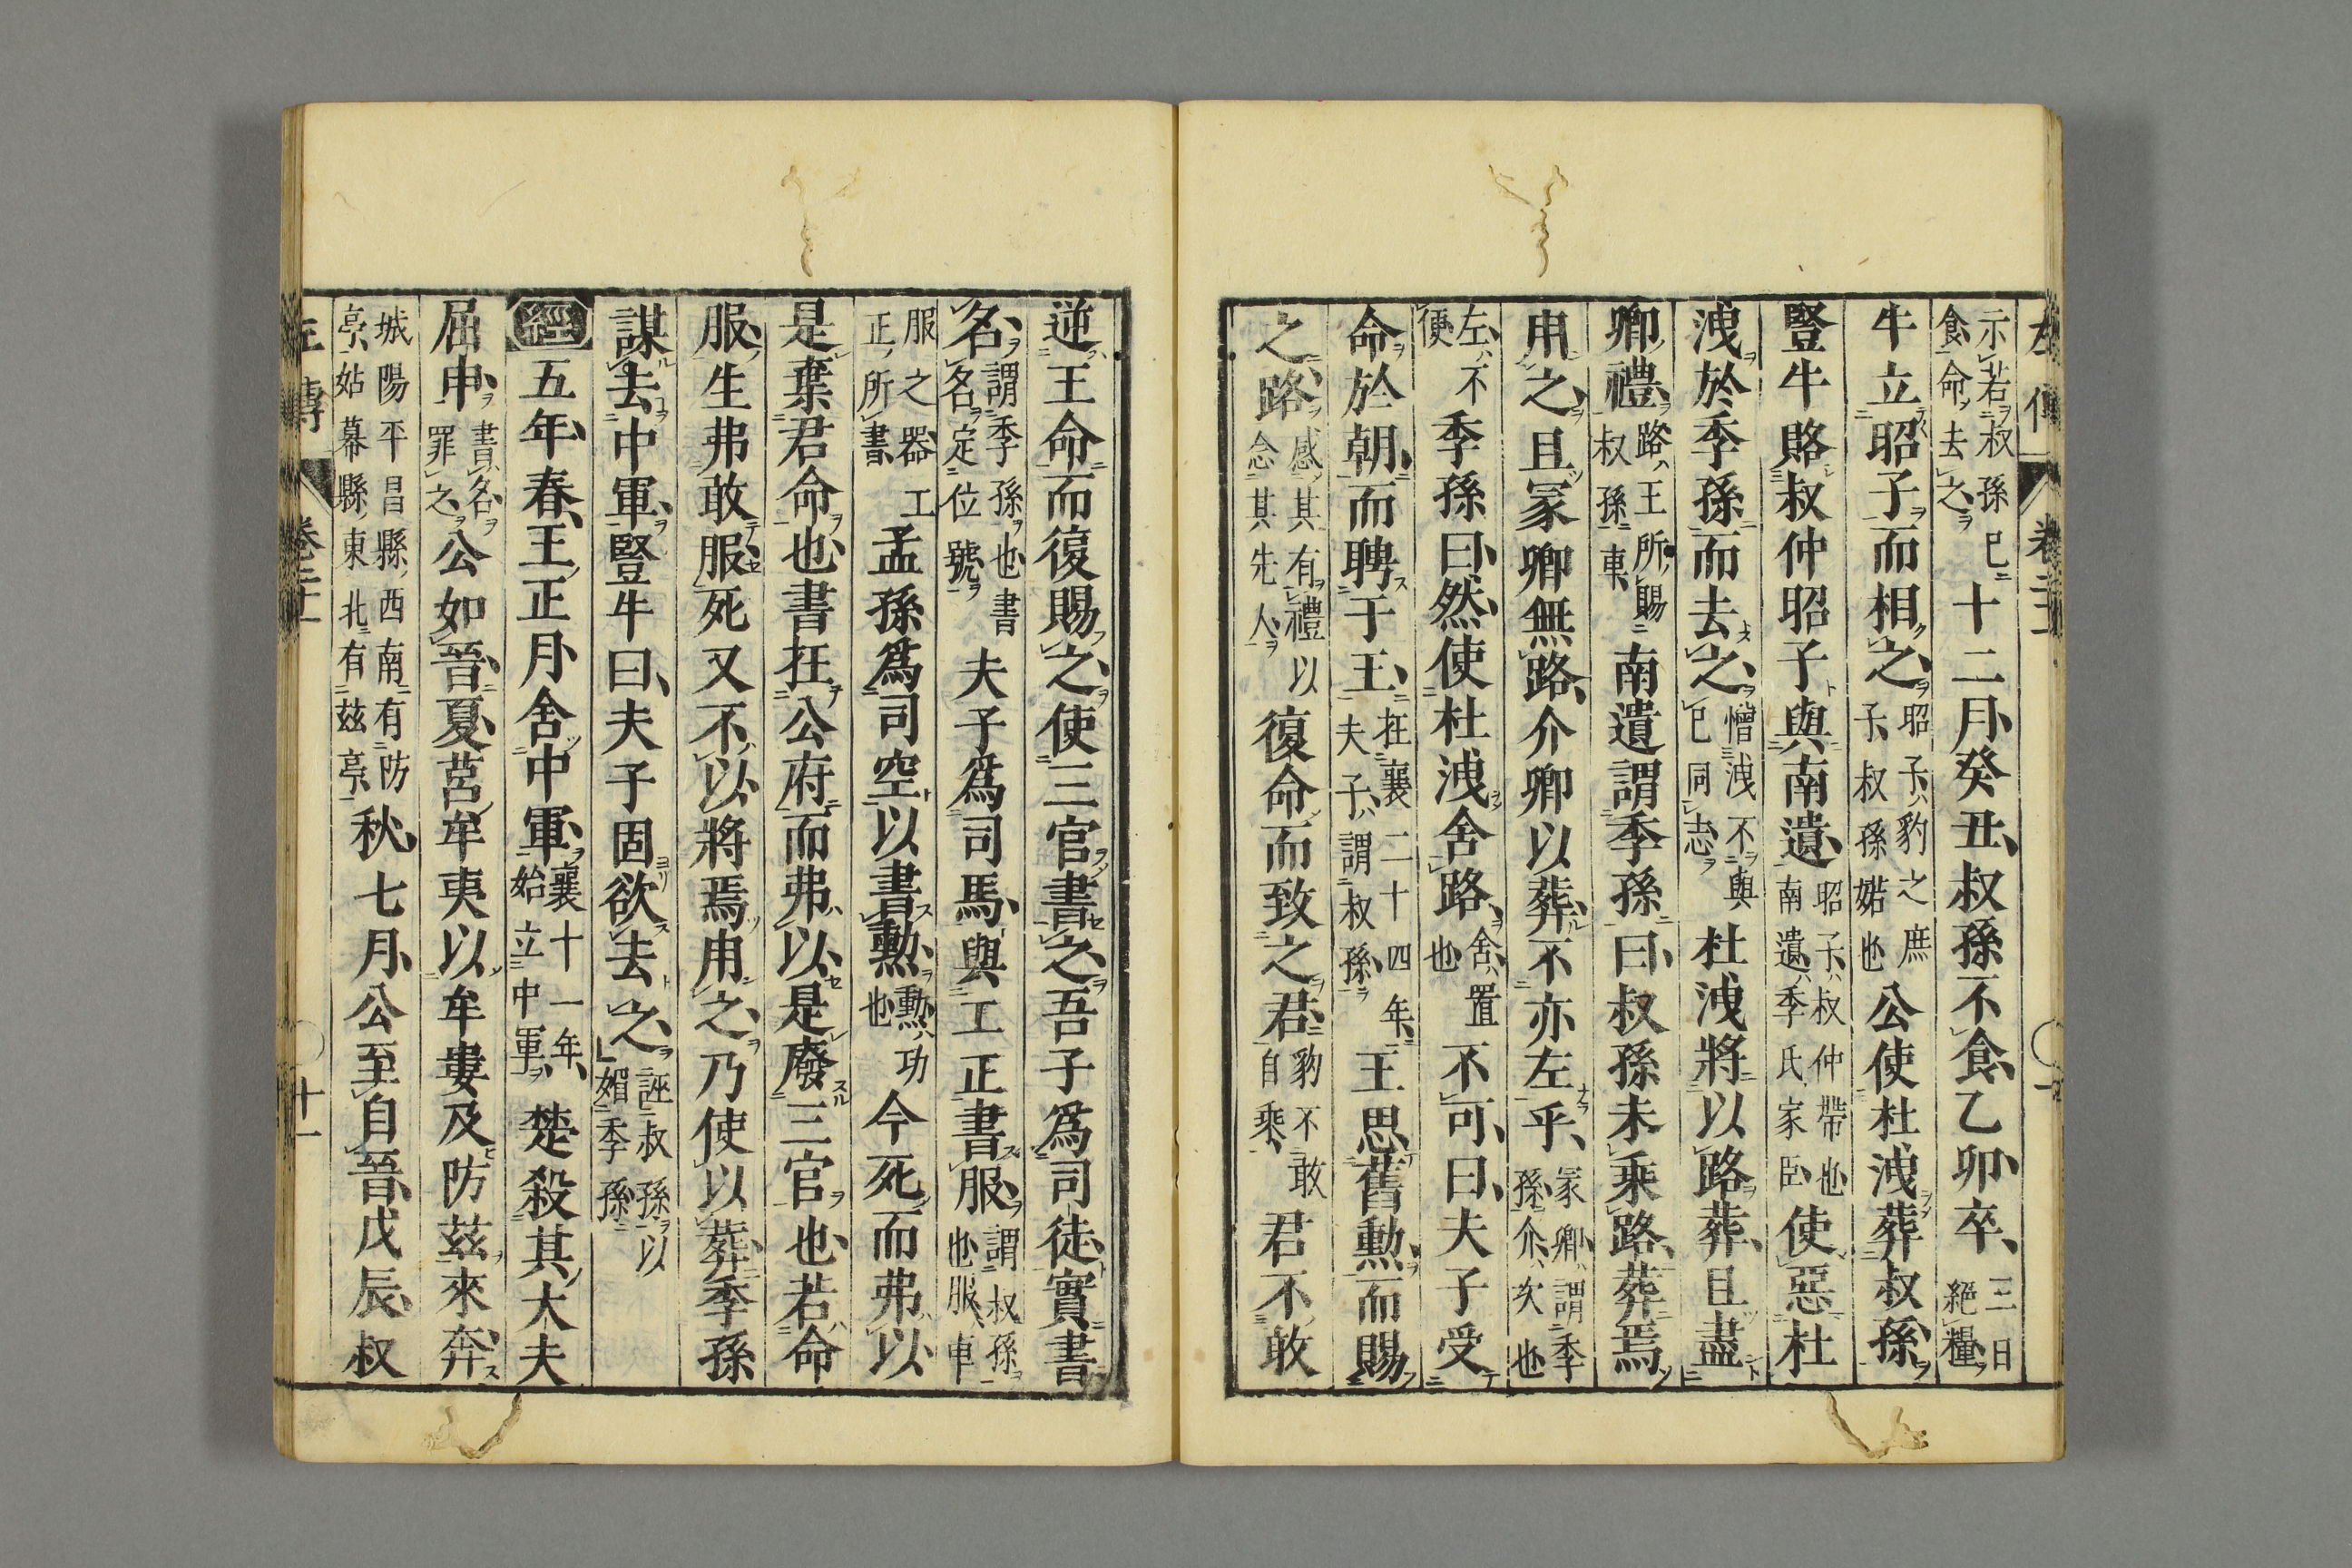 示若叔孫已食命去之十二月癸丑叔孫不食乙卯卒三日絕糧
牛立昭子而相之昭子豹之庶子叔孫婼也公使杜洩葬叔孫
豎牛賂叔仲昭子與南遺昭子叔仲帶也南遺季氏家臣使惡杜
洩於季孫而去之憎洩不與已同志杜洩將以路葬且盡
卿禮路王所賜叔孫車南遺謂季孫曰叔孫未乘路葬焉
用之且冢卿無路介卿以葬不亦左乎冢卿謂季孫介次也
左不便季孫曰然使杜洩舍路舍置也不可曰夫子受
命於朝而聘于王在襄二十四年夫子謂叔孫王思舊勳而賜
之路感其有禮以念其先人復命而致之君豹不敢自乘君不敢
逆王命而復賜之使三官書之吾子爲司徒實書
名謂季孫也書名定位號夫子爲司馬與工正書服謂叔孫也服車
服之器工正所書孟孫爲司空以書勳勳功也今死而弗以
是棄君命也書在公府而弗以是廢三官也若命
服生弗敢服死又不以將焉用之乃使以葬季孫
謀去中軍豎牛曰夫子固欲去之誣叔孫以媚季孫
經五年春王正月舍中軍襄十一年始立中軍楚殺其大夫
屈申書名罪之公如晉夏莒牟夷以牟婁及防茲來奔
城陽平昌縣西南有防亭姑幕縣東北有茲亭秋七月公至自晉戊辰叔
左傳 卷二十一 十一